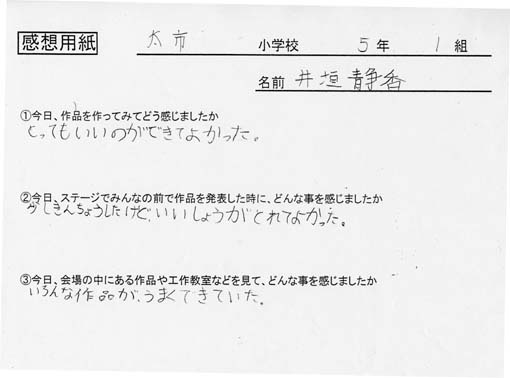 感想用紙 太市 小学校 5年 1組
名前 井垣静香
①今日、作品を作ってみてどう感じましたか
とってもいいのができてよかった。
②今日、ステージでみんなの前で作品を発表した時に、どんな事を感じましたか
少しきんちょうしたけど、いいしょうがとれてよかった。
③今日、会場の中にある作品や工作教室などを見て、どんな事を感じましたか
いろんな作品が、うまくできていた。